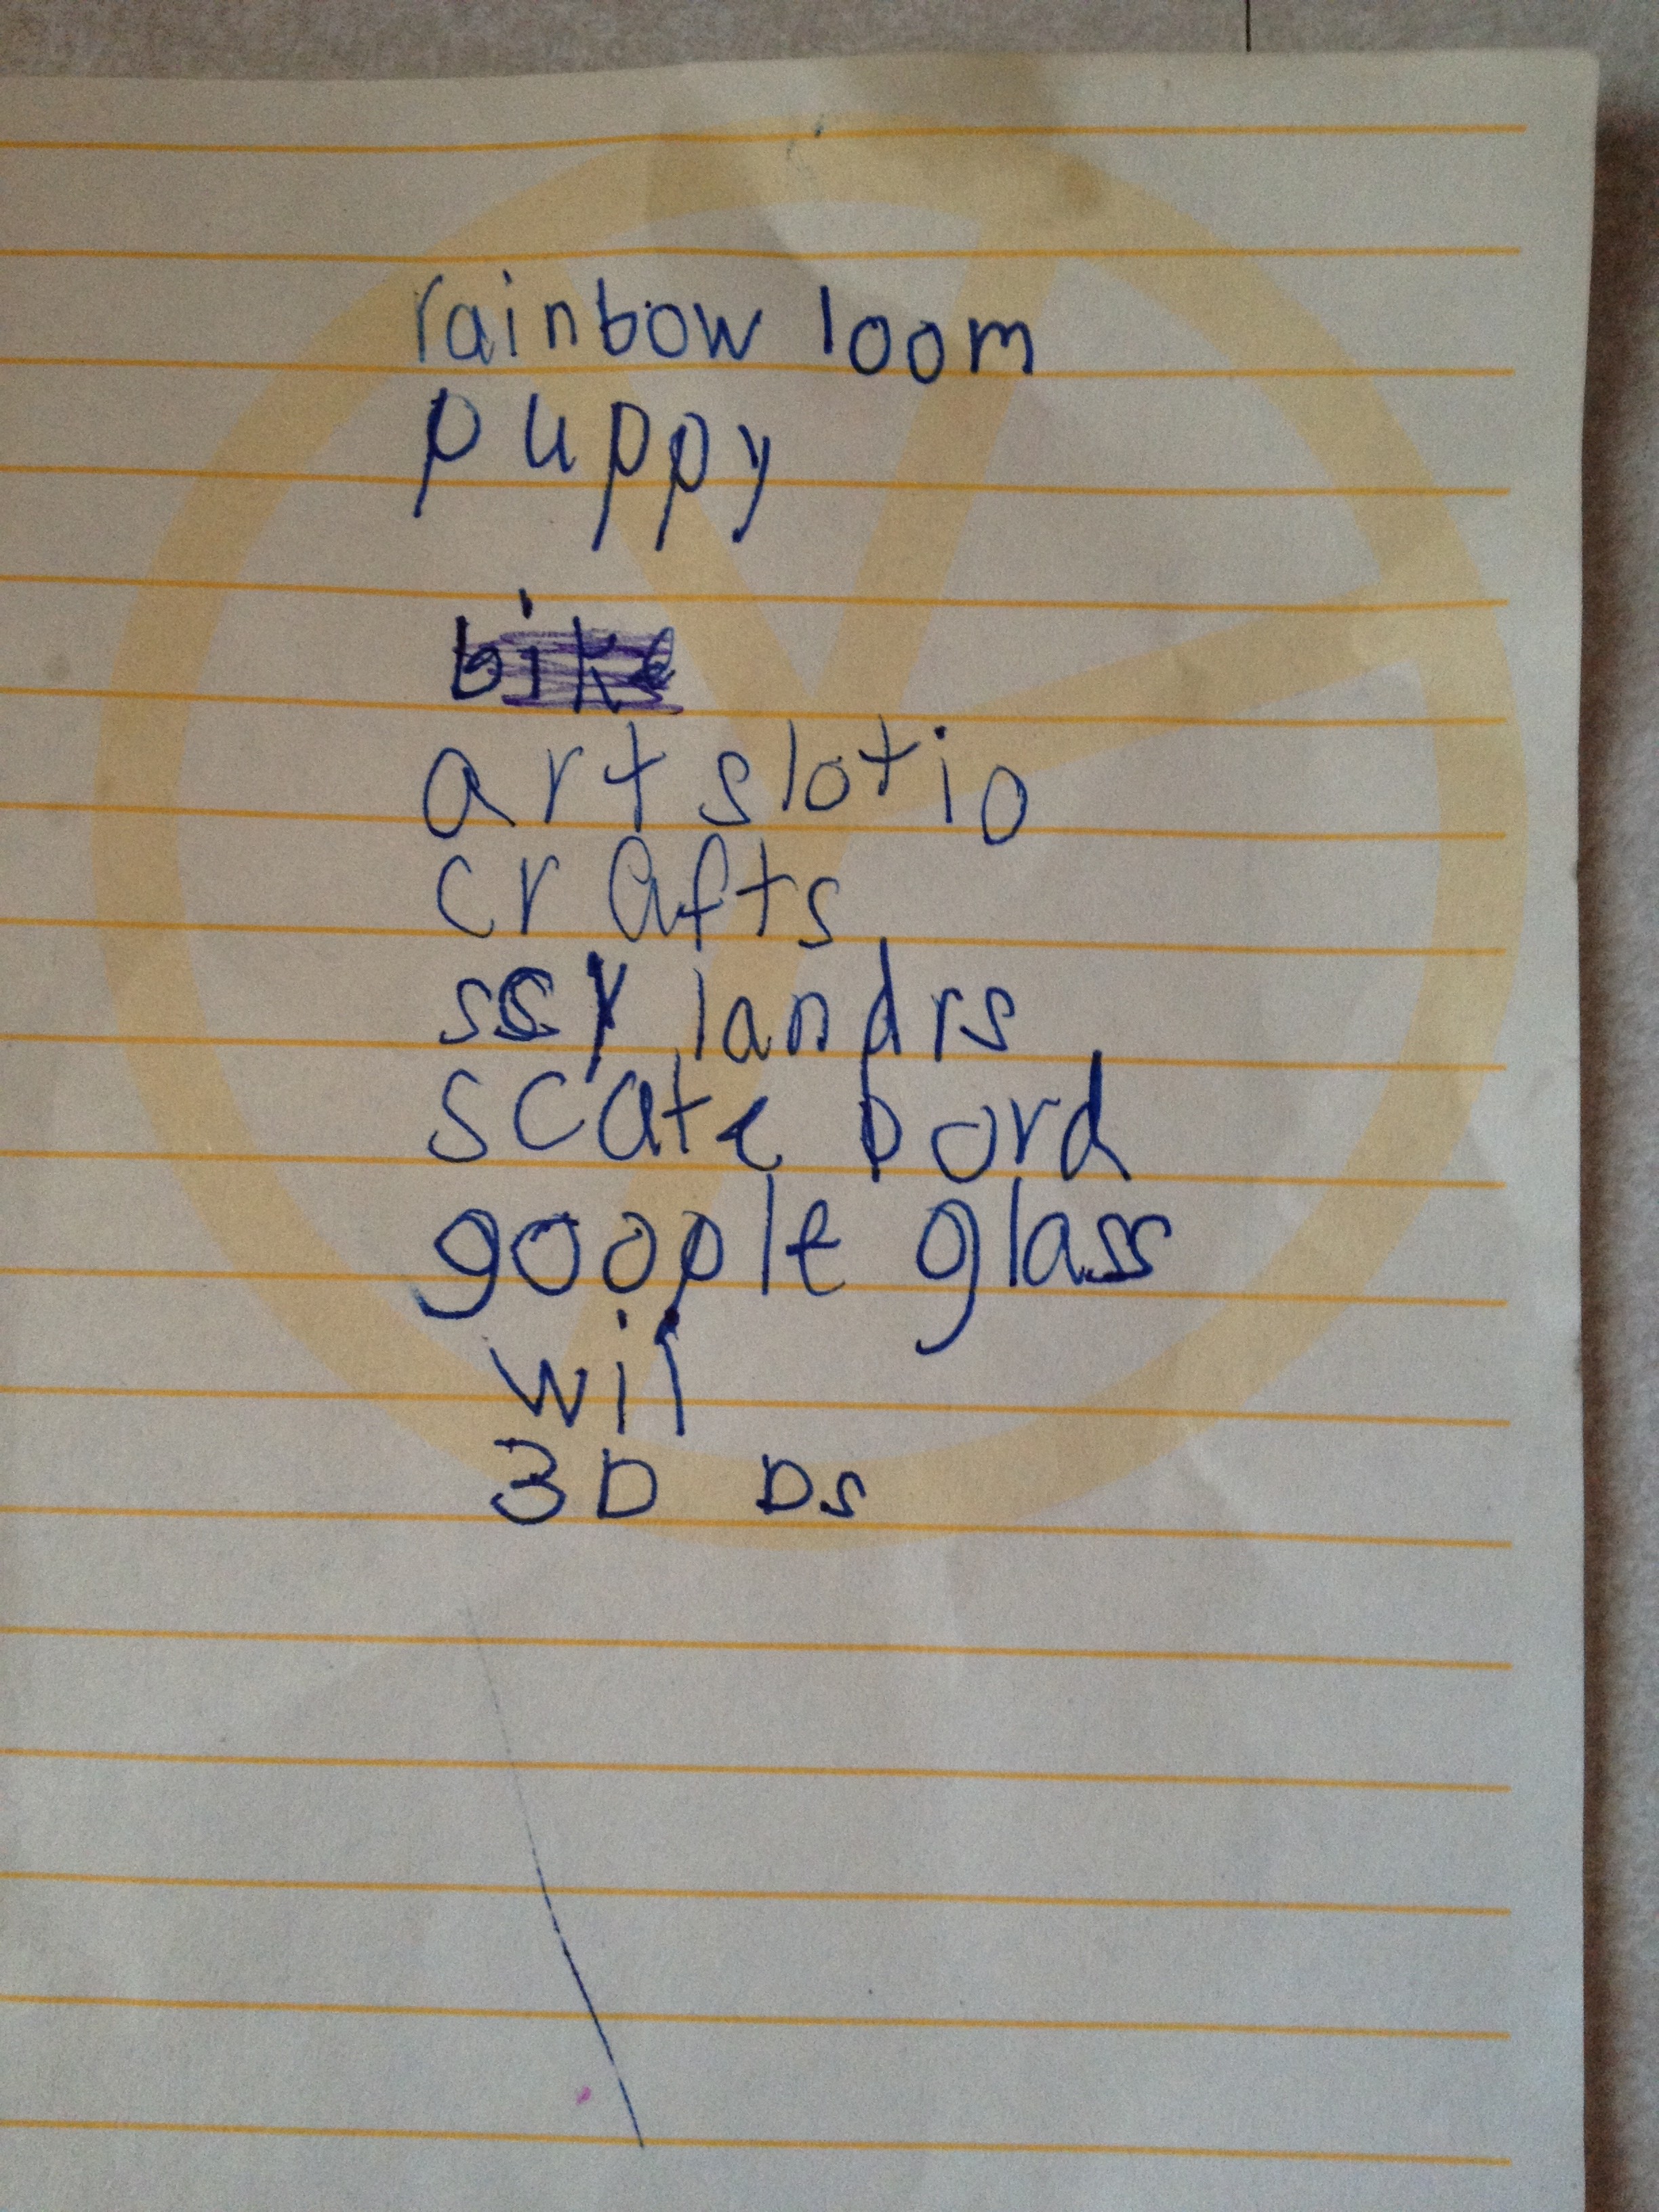 rainbow loom
puppy
bike
art slotio
crafts
ssy landrs
scate bord
goople glass
wii
3D Ds